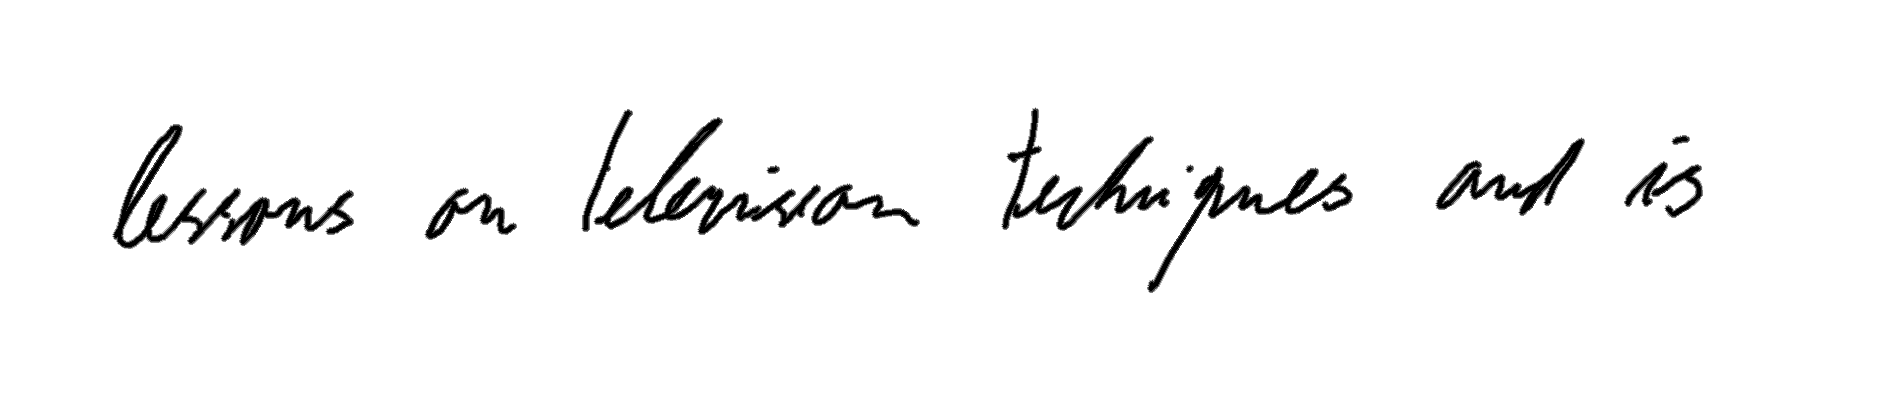 lessons on television techniques and is